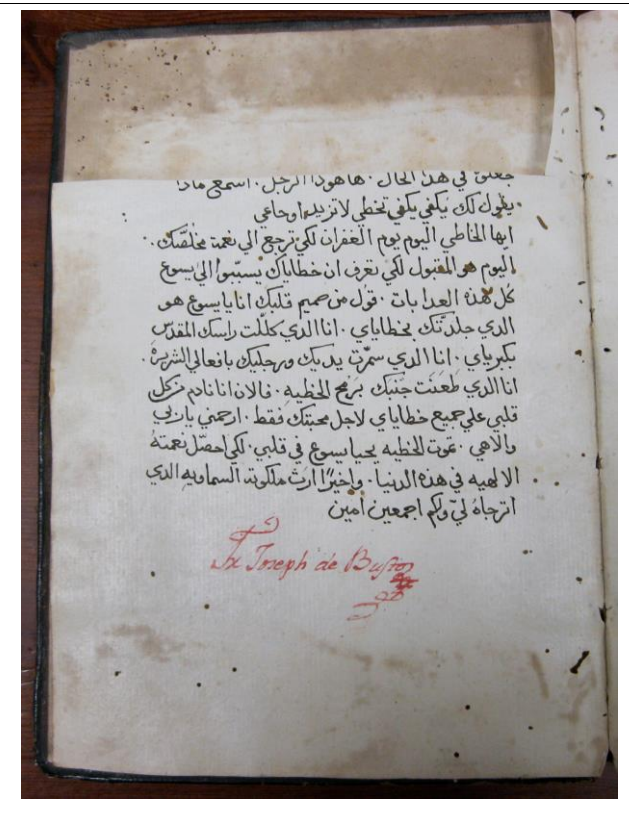 جعلوني في هذا الحال . ها هوذا الرجل . اسمع ماذا
يقول لك يكفي يكفي تخطي لا تزيد اوجاعي
ايها الخاطي اليوم يوم الغفران لكي ترجع الي نعمة مخلصّك .
اليوم هو المقبول لكي تعرف ان خطاياك يسببّوا الي يسوع
كل هذه العدابات . قول من صميم قلبك انا يا يسوع هو
الدي جلدتّك بخطاياي . انا الدي كللّت راسك المقدس
بكبرياي . انا الدي سمّرت يديك ورجليك بافعالي الشريرة .
انا الدي طَعَنت جَنبك برَمح الخطيه . فالان انا نادم من كل
قلبي علي جميع خطاياي لاجل محبتك فقط . ارحمني يا ربي
والاهي . تموت الخطيه يحيا يسوع في قلبي . لكي احصّل نعمتهُ
الالهيه في هذه الدنيا . واخيرًا ارث ملكوته السماويه الدي
اترجاهُ لي ولكم اجمعين امين
Fr Joseph de Buston